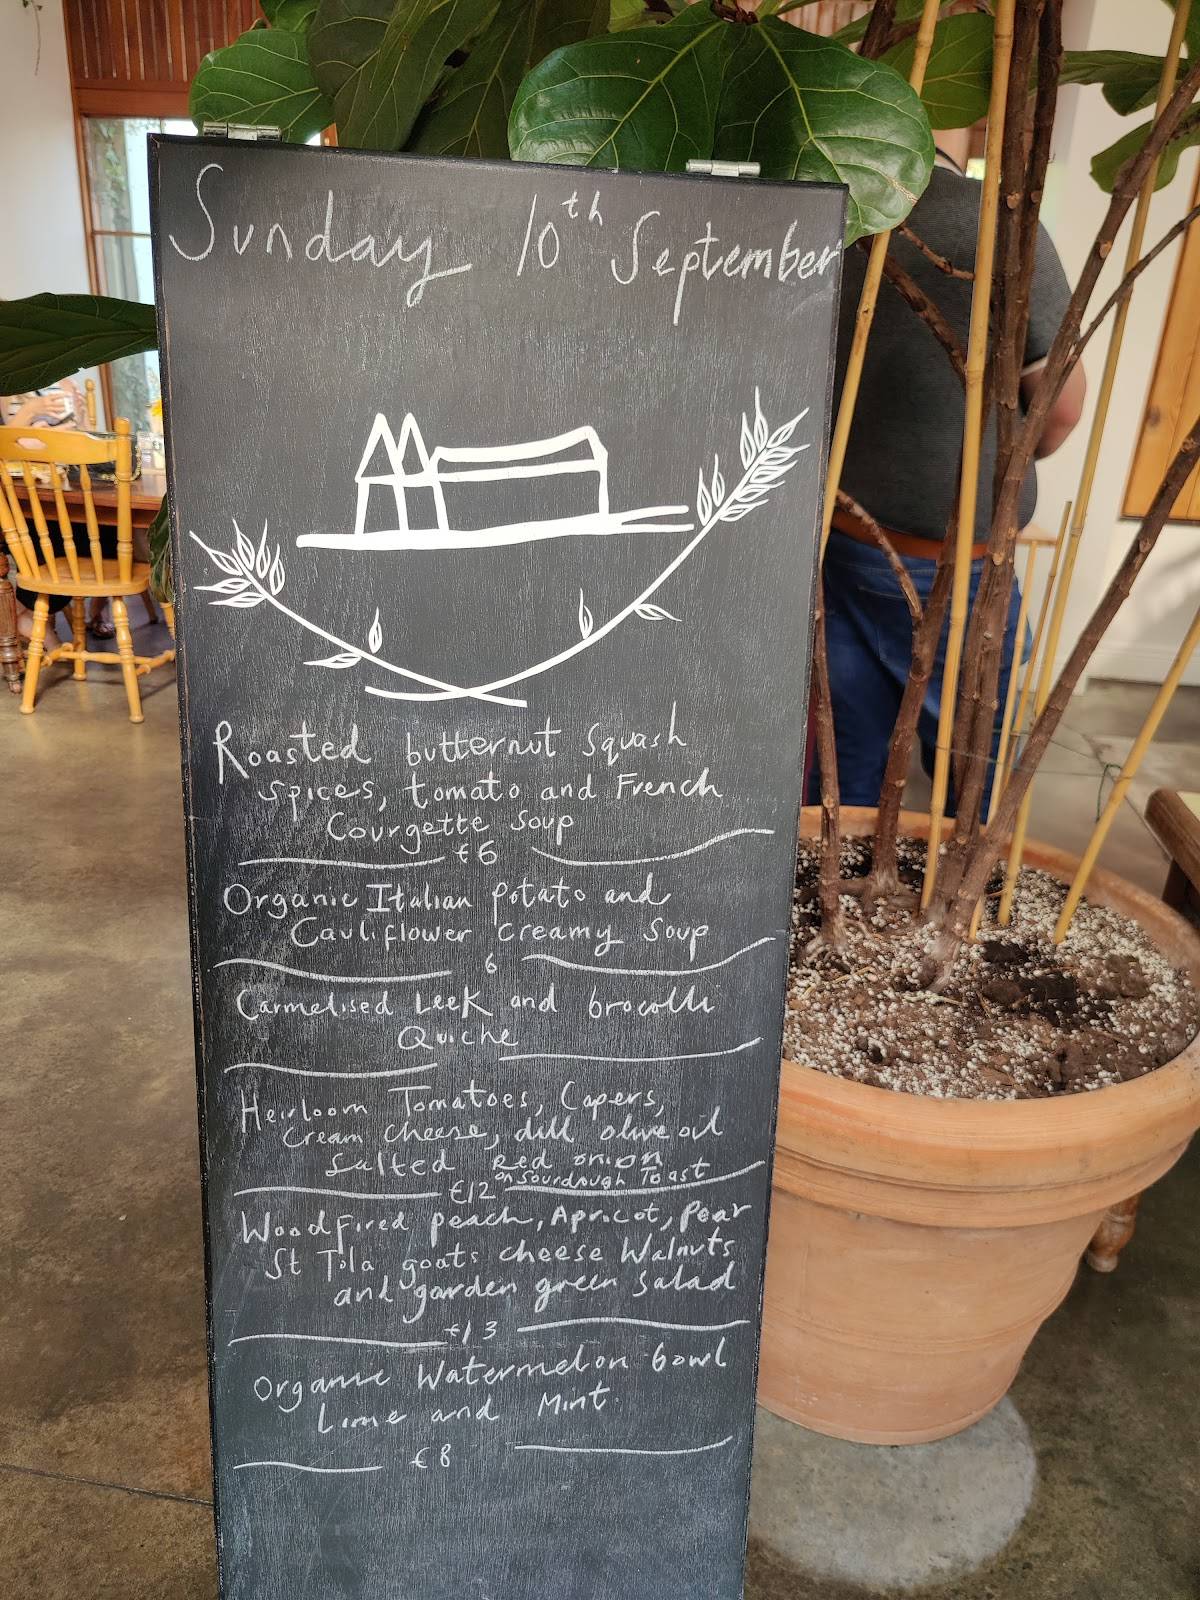 Sunday 10th September
Roasted butternut Squash
Spices, tomato and French
Courgette Soup
€6
Organic Italian potato and
Cauliflower Creamy Soup
6
Carmelised Leek and brocolli
Quiche
Heirloom Tomatoes, Capers,
Cream cheese, dill olive oil
Salted Red onion
on Sourdough Toast
€12
Woodfired peach, Apricot, Pear
St Tola goats cheese Walnuts
and garden green Salad
€13
Organic Watermelon bowl
Lime and Mint.
€8